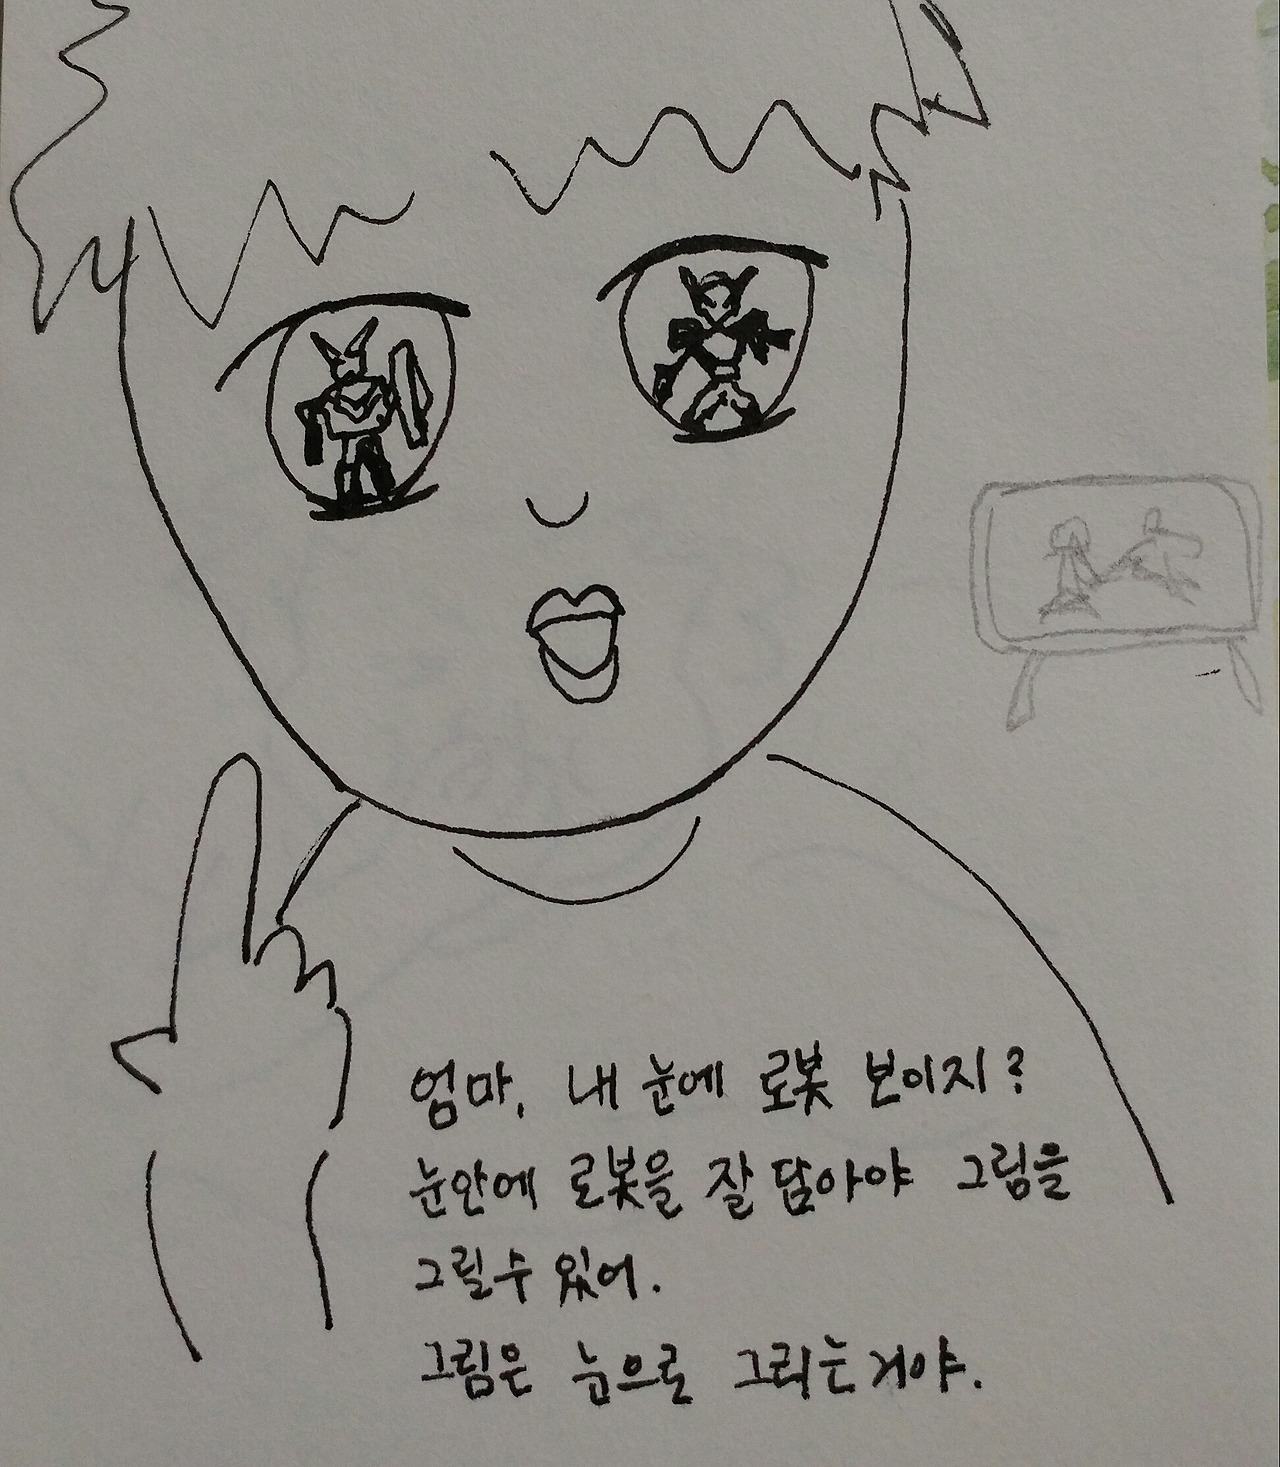 엄마, 내 눈에 로봇 보이지?
눈안에 로봇을 잘 담아야 그림을
그릴수 있어.
그림은 눈으로 그리는거야.